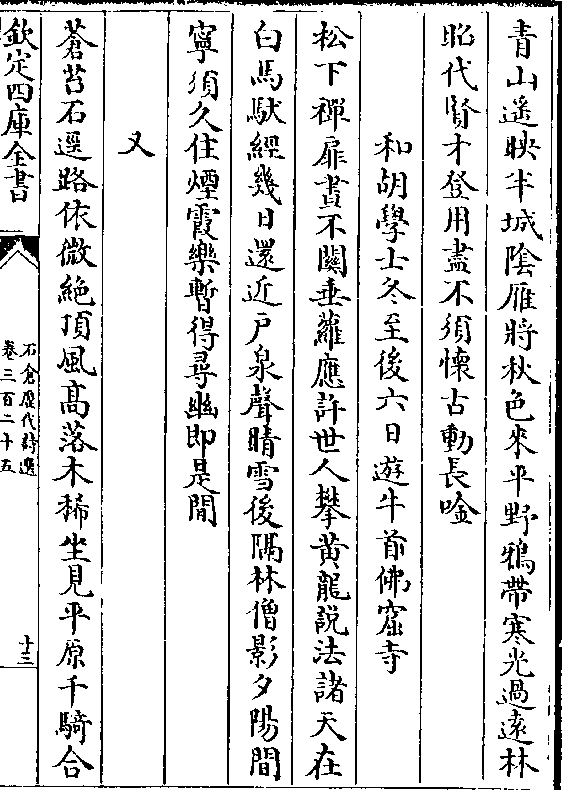 青山遙映半城陰雁將秋色來平野鴉帶寒光過遠林
昭代賢才登用盡不須懷古動長唫
和胡學士冬至後六日遊牛首佛窟寺
松下禪扉晝不關垂蘿應許世人攀黄龍説法諸天在
白馬馱經幾日還近戸泉聲晴雪後隔林僧影夕陽間
寧須久住煙霞樂暫得尋幽即是閒
又
蒼苔石逕路依微絶頂風髙落木稀坐見平原千騎合
欽定四庫全書
石倉歷代詩選
卷三百二十五
十三